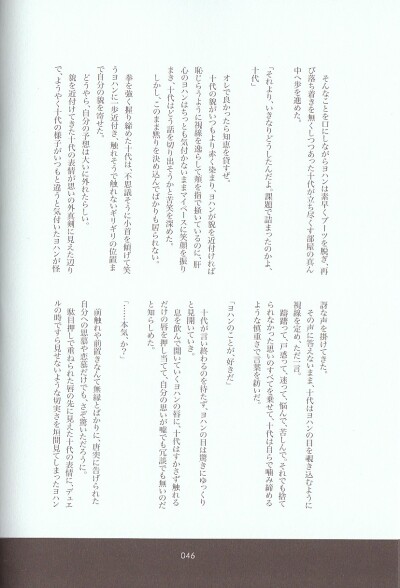 そんなことを口にしながらヨハンは素早くブーツを脱ぎ、再
び落ち着きを無くしつつあった十代が立ち尽くす部屋の真ん
中へ歩を進めた。
「それより、いきなりどうしたんだよ。課題で詰まったのかよ、
十代」
オレで良かったら知恵を貸すぜ。
十代の貌がいつもより赤く染まり、ヨハンが貌を近付ければ
恥じらうように視線を逸らして頬を指で掻いているのに、肝
心のヨハンはちっとも気付かないままマイペースに笑顔を振り
まき、十代はどう話を切り出そうかと苦笑を深める。
しかし、このまま黙りを決め込んでばかりも居られない。
拳を強く握り締めた十代は、不思議そうに小首を傾げて笑
うヨハンに一歩近付き、触れそうで触れないギリギリの位置ま
で自分の貌を寄せた。
どうやら、自分の予想は大いに外れたらしい。
貌を近付けてきた十代の表情が思いの外真剣に見えた辺り
で、ようやく十代の様子がいつもと違うと気付いたヨハンが怪
訝な声を掛けてきた。
その声に答えないまま、十代はヨハンの目を覗き込むように
視線を定めた、ただ一言。
躊躇って、戸惑って、迷って、悩んで、苦しんで。それでも捨て
られなかった思いのすべてを乗せて、十代は自らで噛み締める
ような慎重さで言葉を紡いだ。
「ヨハンのことが、好きだ」
十代が言い終わるのを待たず、ヨハンの目は驚きにゆっくり
と見開いていき。
息を飲んで開いていくヨハンの唇に、十代はすかさず触れる
だけの唇を押し当てて、自分の思いが嘘でも冗談でも無いのだ
と知らしめた。
「……本気、か？」
前触れや前置きなんて無縁とばかりに、唐突に告げられた
自分への思慕や恋慕だけでも、さぞ驚いただろうに。
駄目押しで重ねられた唇の先に見えた十代の表情に、デュエ
ルの時ですら見せないような切実さを垣間見てしまったヨハン
046